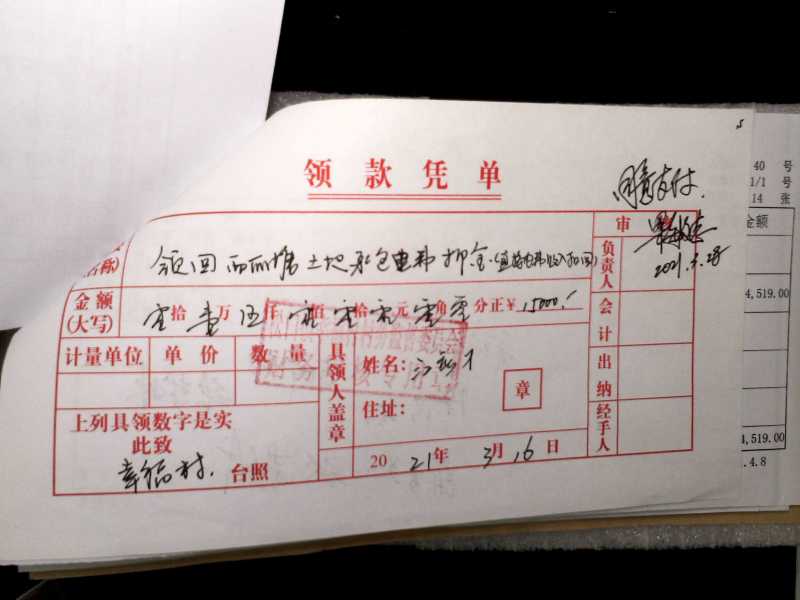 领款凭单
同意支付.
审
2021.3.28
名称)
领回 土地承包电费押金.
负责人
金额
(大写)
零拾壹万伍仟零佰零拾零元零角零分正¥ 15000.-
会计
计量单位 单价 数量
具领人盖章
姓名:
章
住址:
出纳
经手人
上列具领数字是实
此致
幸福村. 台照
2021年 3月 16日
40 号
1/1 号
14 张
金额
4,519.00
4,519.00
.4.8